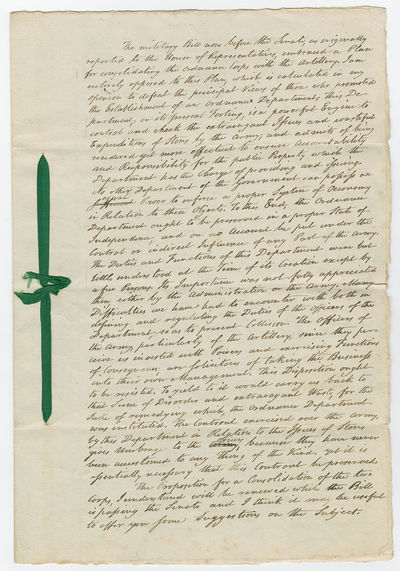 The military Bill now before the Senate, as originally
reported to the House of Representatives, embraced a Plan
for consolidating the Ordnance Corps with the Artillery. I am
entirely opposed to this Plan which is calculated in my
opinion to defeat the principal Views of those who promoted
the Establishment of an Ordnance Department. This De-
partment, on its present Footing, is a powerful Engine to
control and check the extravagant Issues and wasteful
Expenditure of Stores by the Army; and admits of being
rendered yet more effectual to ensure Accountability
and Responsibility for the public Property which the
Department has the Charge of providing and issuing.
No other Department of the Government can possess an
Power to enforce a proper System of Oeconomy
in Relation to these Objects. To this End, the Ordnance
Department ought to be preserved in a proper State of
Independence and on no Account be put under the
Control or indirect Influence of any Part of the Army.
The Duties and Functions of this Department were but
little understood at the Time of its Creation except by
a few Persons. Its Importance was not fully appreciated
then either by the Administration or the Army. Many
Difficulties we have had to encounter with both in
defining and regulating the Duties of the officers of the
so as to prevent Collision. The officers of
the Army, particularly of the Artillery, since they per-
ceive us invested with Powers and exercising Functions
of Consequence, are solicitous of taking this Business
into their own Management. This Disposition ought
to be resisted. To yield to it would carry us back to
that State of Disorder and extravagant Waste, for the
Sake of remedying which, the Ordnance Department
was instituted. The Controul exercised over the army
by this Department in Relation to the Issues of Stores
gives Umbrage to the Army because they have never
been accustomed to any thing of the Kind. Yet it is
essentially necessary that this Controul be preserved.
The Proposition for a Consolidation of the two
Corps I understand will be renewed when the Bill
is passing the Senate and I think it may be useful
to offer you some Suggestions on the Subject.